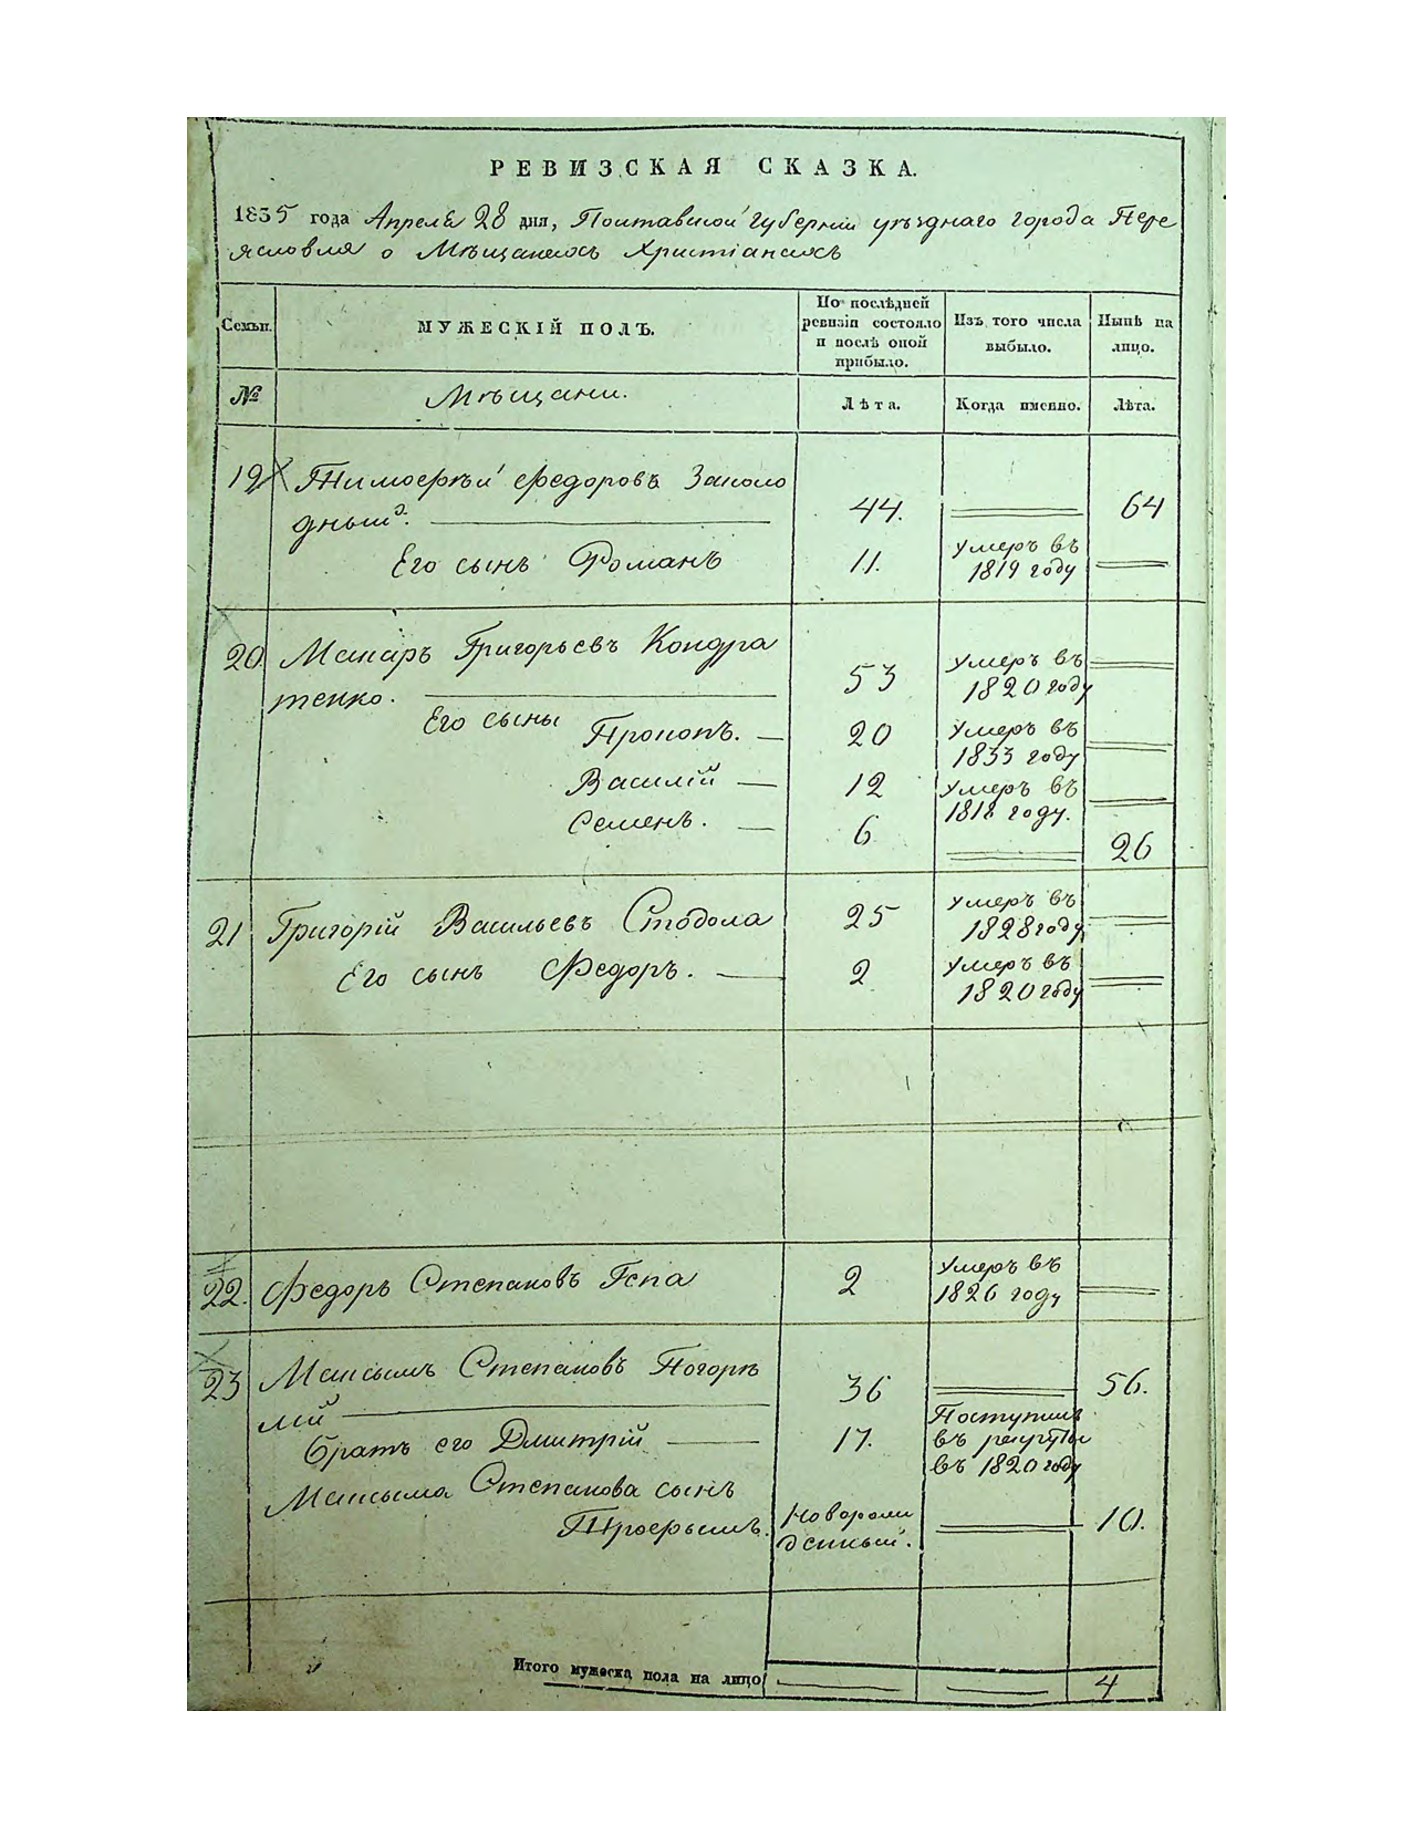 РЕВИЗСКАЯ СКАЗКА.
1835 года Апреля 28 дня, Полтавской Губернии уѣзднаго города Пере
яславля о Мѣщанахъ Христіанахъ
Семьи.
МУЖЕСКІЙ ПОЛЪ.
По послѣдней ревизіи состояло и послѣ оной прибыло.
Изъ того числа выбыло.
Нынѣ на лицо.
№
Мѣщани.
Лѣта.
Когда именно.
Лѣта.
19 Тимофѣй Федоровъ Заколо
дный. 44. 64
Его сынъ Романъ 11. Умеръ въ
1819 году
20 Макаръ Григорьевъ Кондра
тенко. 53 Умеръ въ
1820 году
Его сыны Прокопъ. 20 Умеръ въ
1833 году
Василій 12 Умеръ въ
1818 году.
Семенъ. 6 26
21 Григорій Васильевъ Стодола 25 Умеръ въ
1828 году
Его сынъ Федоръ. 2 Умеръ въ
1820 году
22. Федоръ Степановъ Гепа 2 Умеръ въ
1826 году
23 Максымъ Степановъ Погорѣ
лій 36 56.
Братъ его Дмитрій 17. Поступилъ
въ рекруты
въ 1820 году
Максыма Степанова сынъ
Трофымъ. Новорож
денный. 10.
Итого мужеска пола на лицо 4